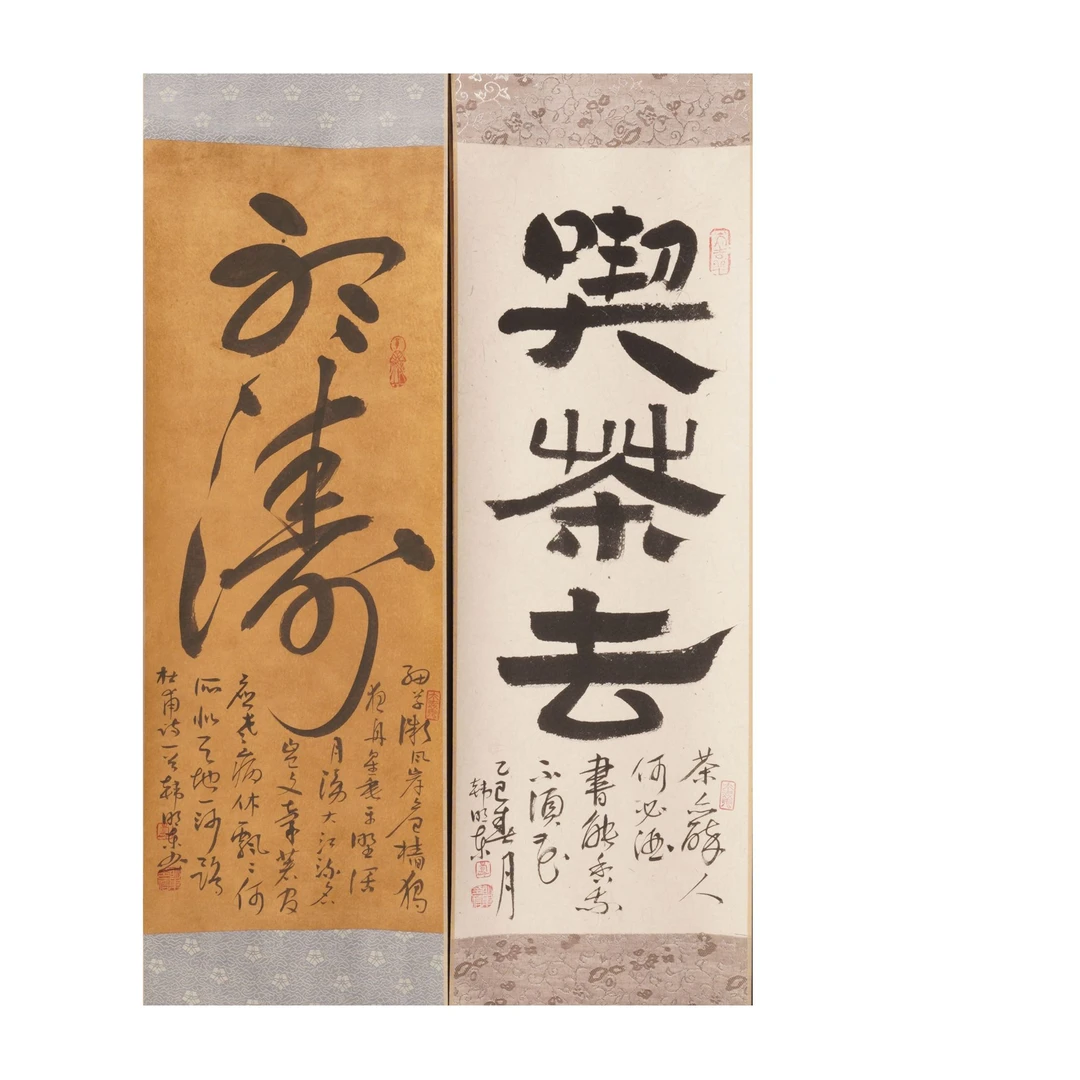 喫茶去
茶亦醉人
何必酒
書能香我
不須花
乙巳春月
韩明东
聽濤
細草微風岸危檣獨
夜舟星垂平野阔
月湧大江流名
岂文章著官
應老病休飄々何
所似天地一沙鷗
杜甫诗一首韩明东书